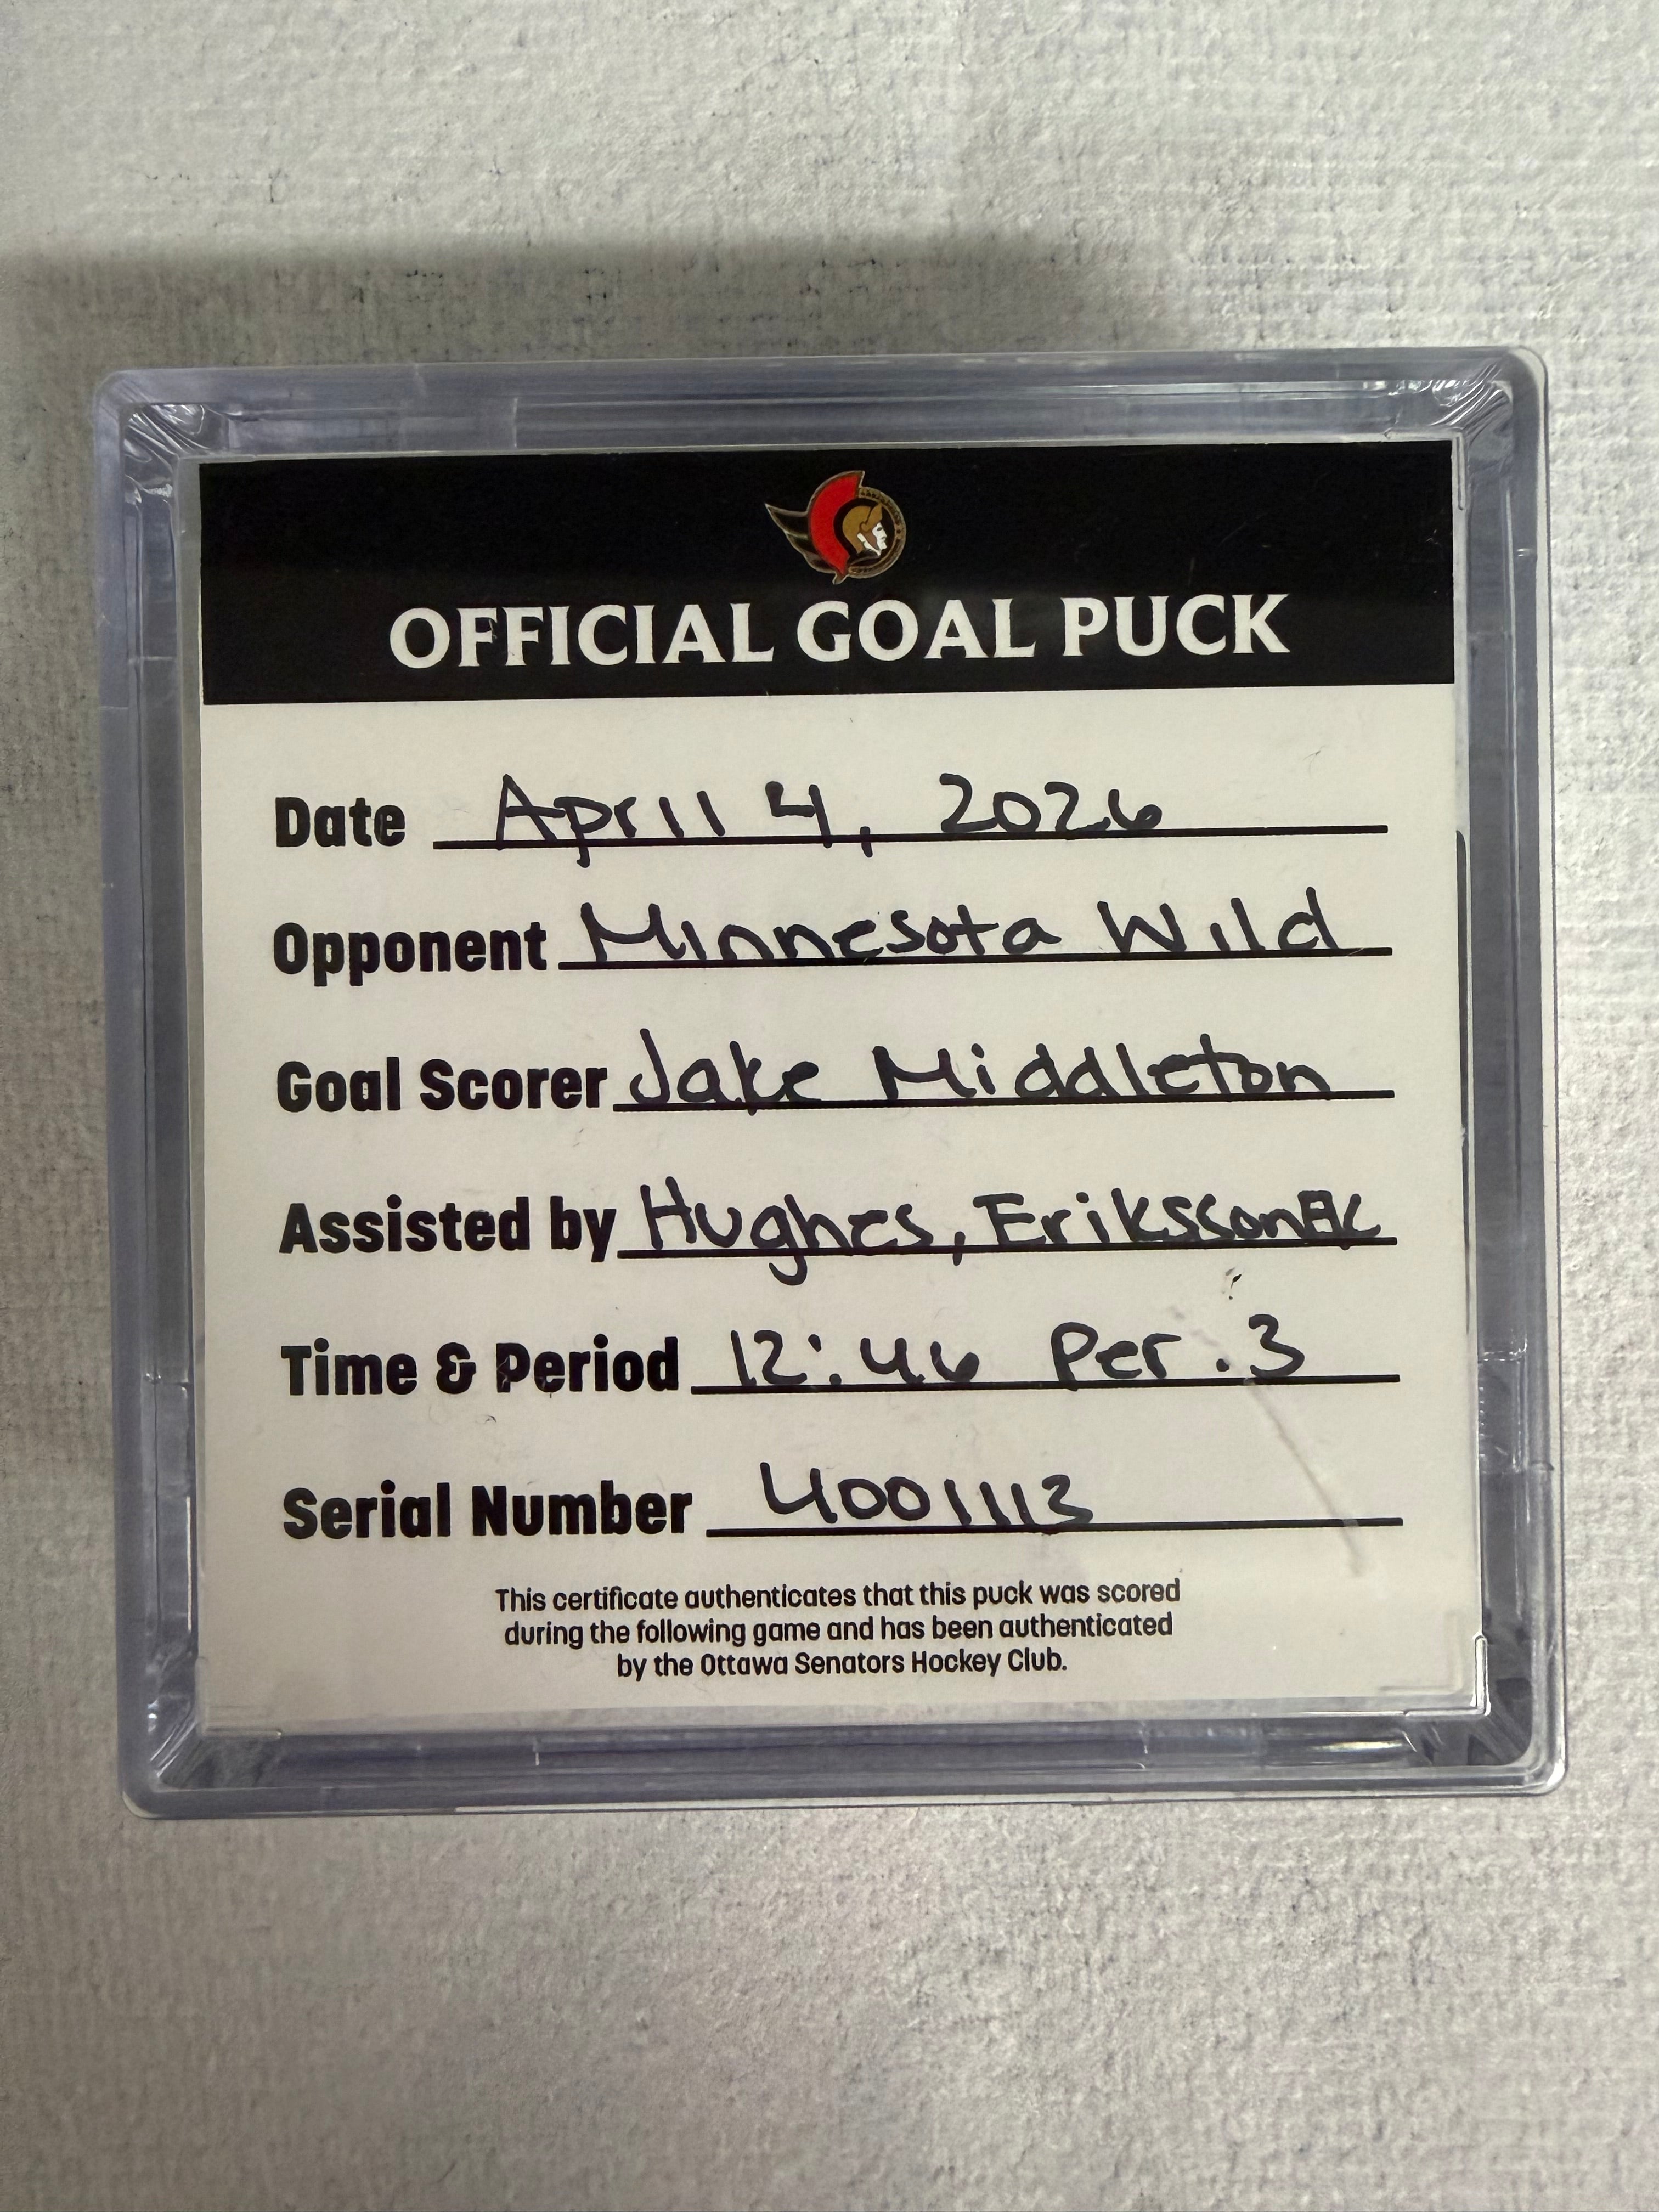 OFFICIAL GOAL PUCK
Date April 4, 2026
Opponent Minnesota Wild
Goal Scorer Jake Middleton
Assisted by Hughes, Eriksson Ek
Time & Period 12:46 Per. 3
Serial Number 4001113
This certificate authenticates that this puck was scored
during the following game and has been authenticated
by the Ottawa Senators Hockey Club.